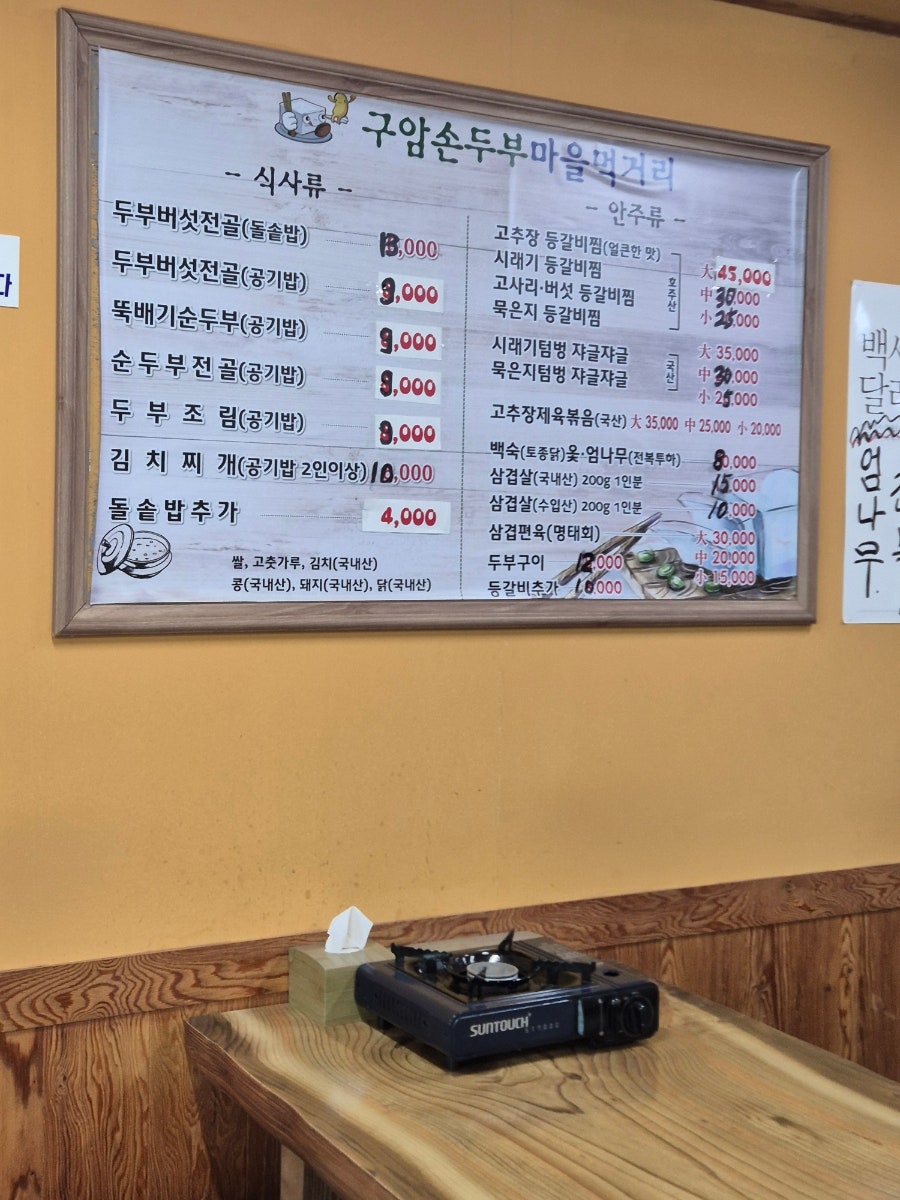 구암손두부마을먹거리
- 식사류 -
두부버섯전골(돌솥밥) 13,000
두부버섯전골(공기밥) 9,000
뚝배기순두부(공기밥) 9,000
순두부전골(공기밥) 9,000
두부조림(공기밥) 9,000
김치찌개(공기밥 2인이상) 10,000
돌솥밥추가 4,000
쌀, 고춧가루, 김치(국내산)
콩(국내산), 돼지(국내산), 닭(국내산)
- 안주류 -
고추장 등갈비찜(얼큰한 맛)
시래기 등갈비찜 大 45,000
고사리·버섯 등갈비찜 호주산 中 30,000
묵은지 등갈비찜 小 25,000
시래기텀벙 쟈글쟈글 大 35,000
묵은지텀벙 쟈글쟈글 국산 中 30,000
小 25,000
고추장제육볶음(국산) 大 35,000 中 25,000 小 20,000
백숙(토종닭)옻·엄나무(전복투하) 80,000
삼겹살(국내산) 200g 1인분 15,000
삼겹살(수입산) 200g 1인분 10,000
삼겹편육(명태회) 大 30,000
두부구이 12,000 中 20,000
등갈비추가 10,000 小 15,000
다
백
달
엄
나
무
SUNTOUCH